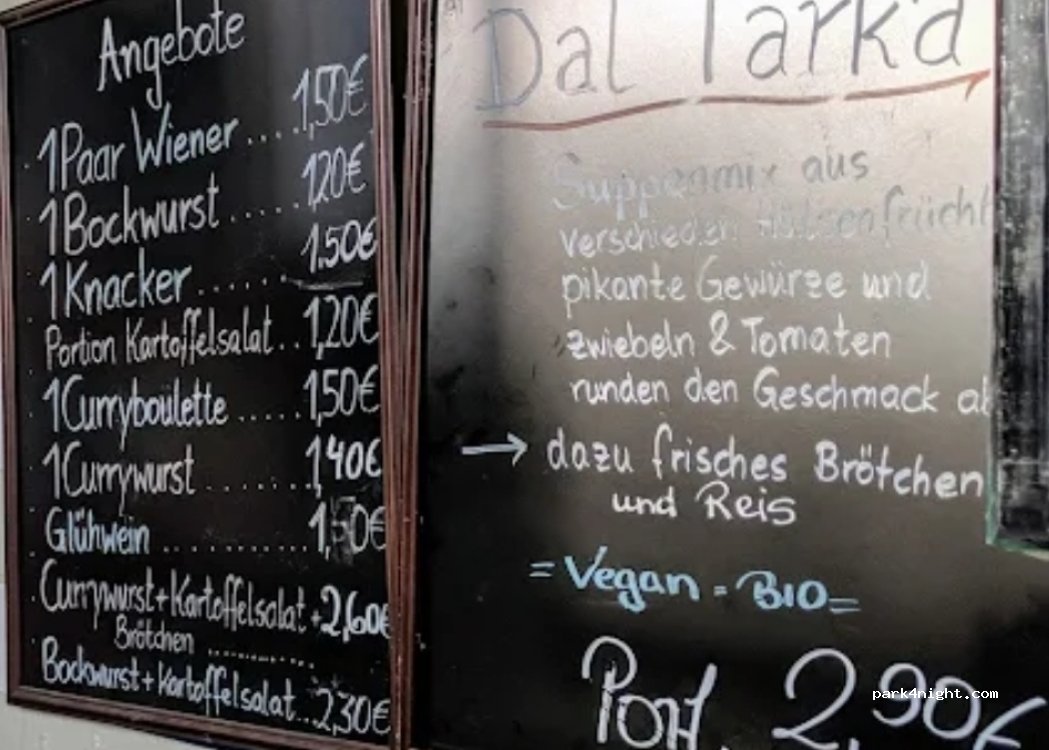 Angebote
1 Paar Wiener .... 1,50€
1 Bockwurst ..... 1,20€
1 Knacker ...... 1,50€
Portion Kartoffelsalat .. 1,20€
1 Curryboulette ..... 1,50€
1 Currywurst ....... 1,40€
Glühwein ..........
Currywurst+Kartoffelsalat + 2,60€
Brötchen ............
Bockwurst+Kartoffelsalat... 2,30€
Dal Tark'a
Suppenmix aus
verschieden Hülsenfrücht
pikante Gewürze und
zwiebeln & Tomaten
runden den Geschmack ab
→ dazu frisches Brötchen
und Reis
= Vegan = BIO =
Port. 2,90€
park4night.com